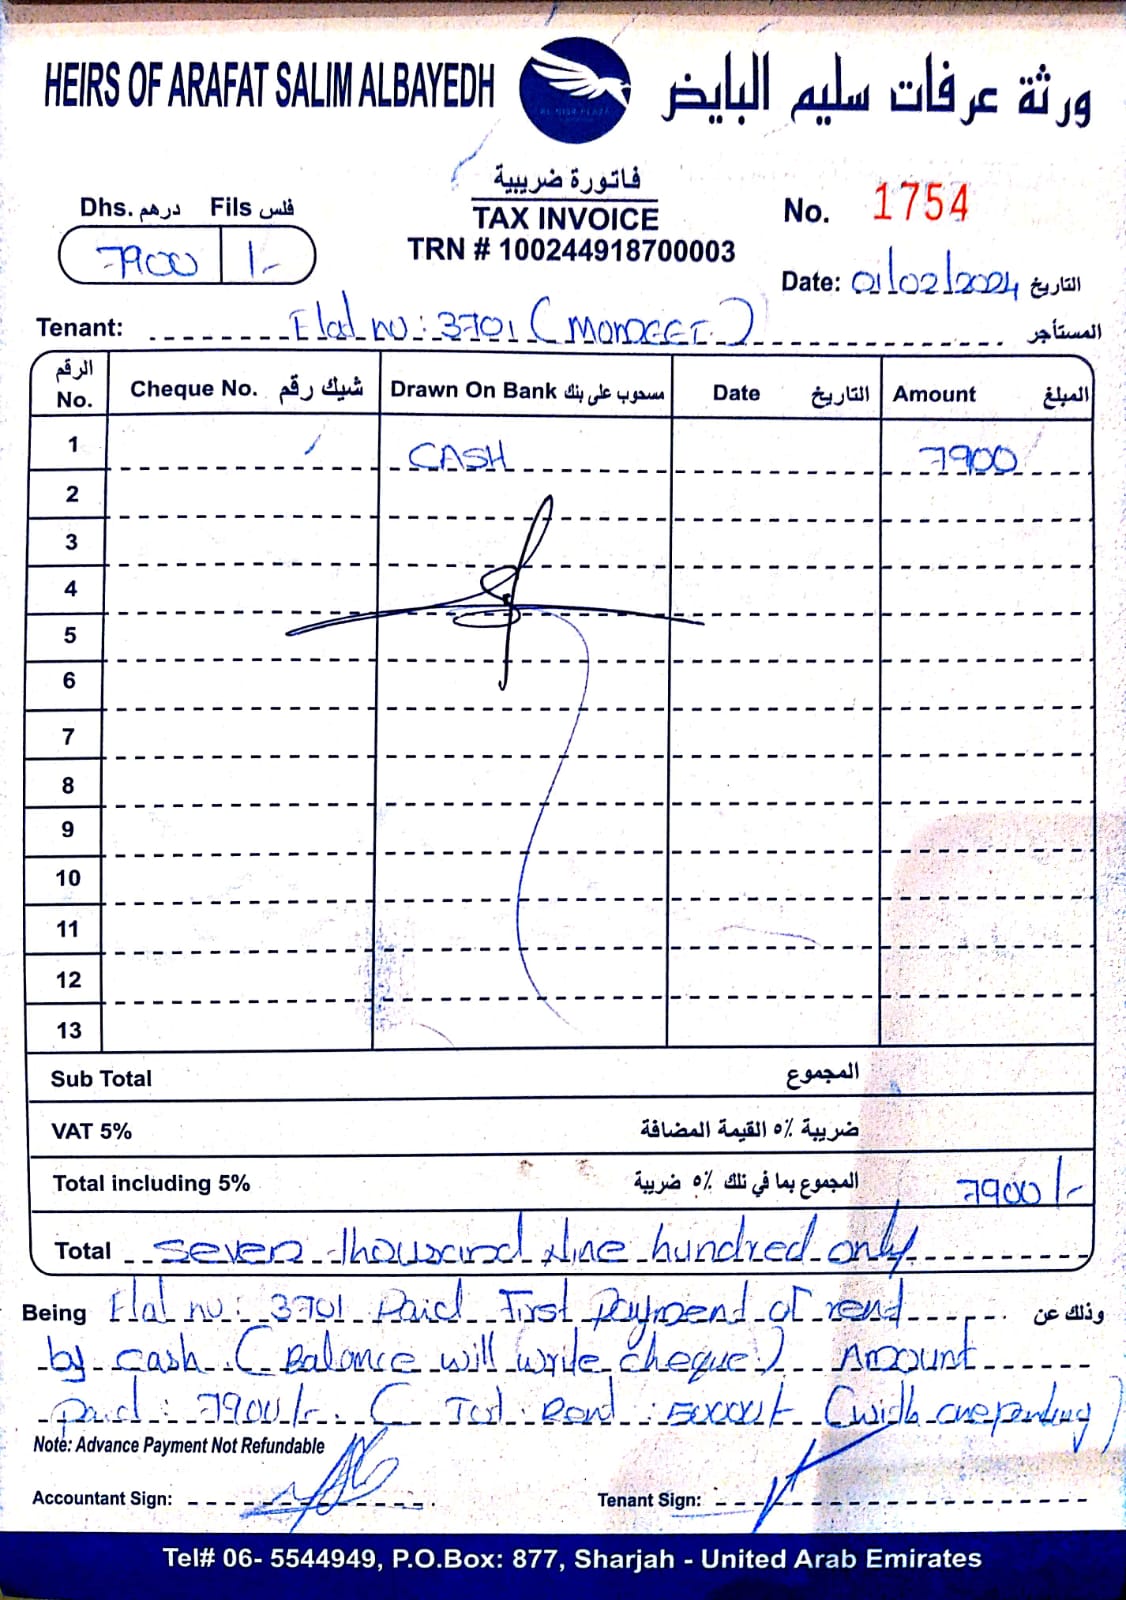 HEIRS OF ARAFAT SALIM ALBAYEDH
ورثة عرفات سليم البايض
AL NISR PLAZA
فاتورة ضريبية
TAX INVOICE
TRN # 100244918700003
Dhs. درهم Fils فلس
7900 /-
No. 1754
Date: 01/02/2024 التاريخ
Tenant: Flat no: 3701 ( ) المستأجر
الرقم No. Cheque No. شيك رقم Drawn On Bank مسحوب على بنك Date التاريخ Amount المبلغ
1 CASH 7900
2
3
4
5
6
7
8
9
10
11
12
13
Sub Total المجموع
VAT 5% ضريبة ٥٪ القيمة المضافة
Total including 5% المجموع بما في تلك ٥٪ ضريبة 7900/-
Total seven thousand Nine hundred only
Being Flat no: 3701 Paid First payment of rent وذلك عن
by cash (Balance will write cheque) Amount
paid: 7900/- ( Rent : (with
Note: Advance Payment Not Refundable
Accountant Sign:
Tenant Sign:
Tel# 06- 5544949, P.O.Box: 877, Sharjah - United Arab Emirates